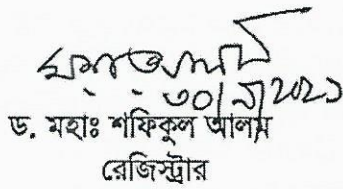 ৩০/৯/2021
ড. মহাঃ শফিকুল আলম
রেজিস্ট্রার